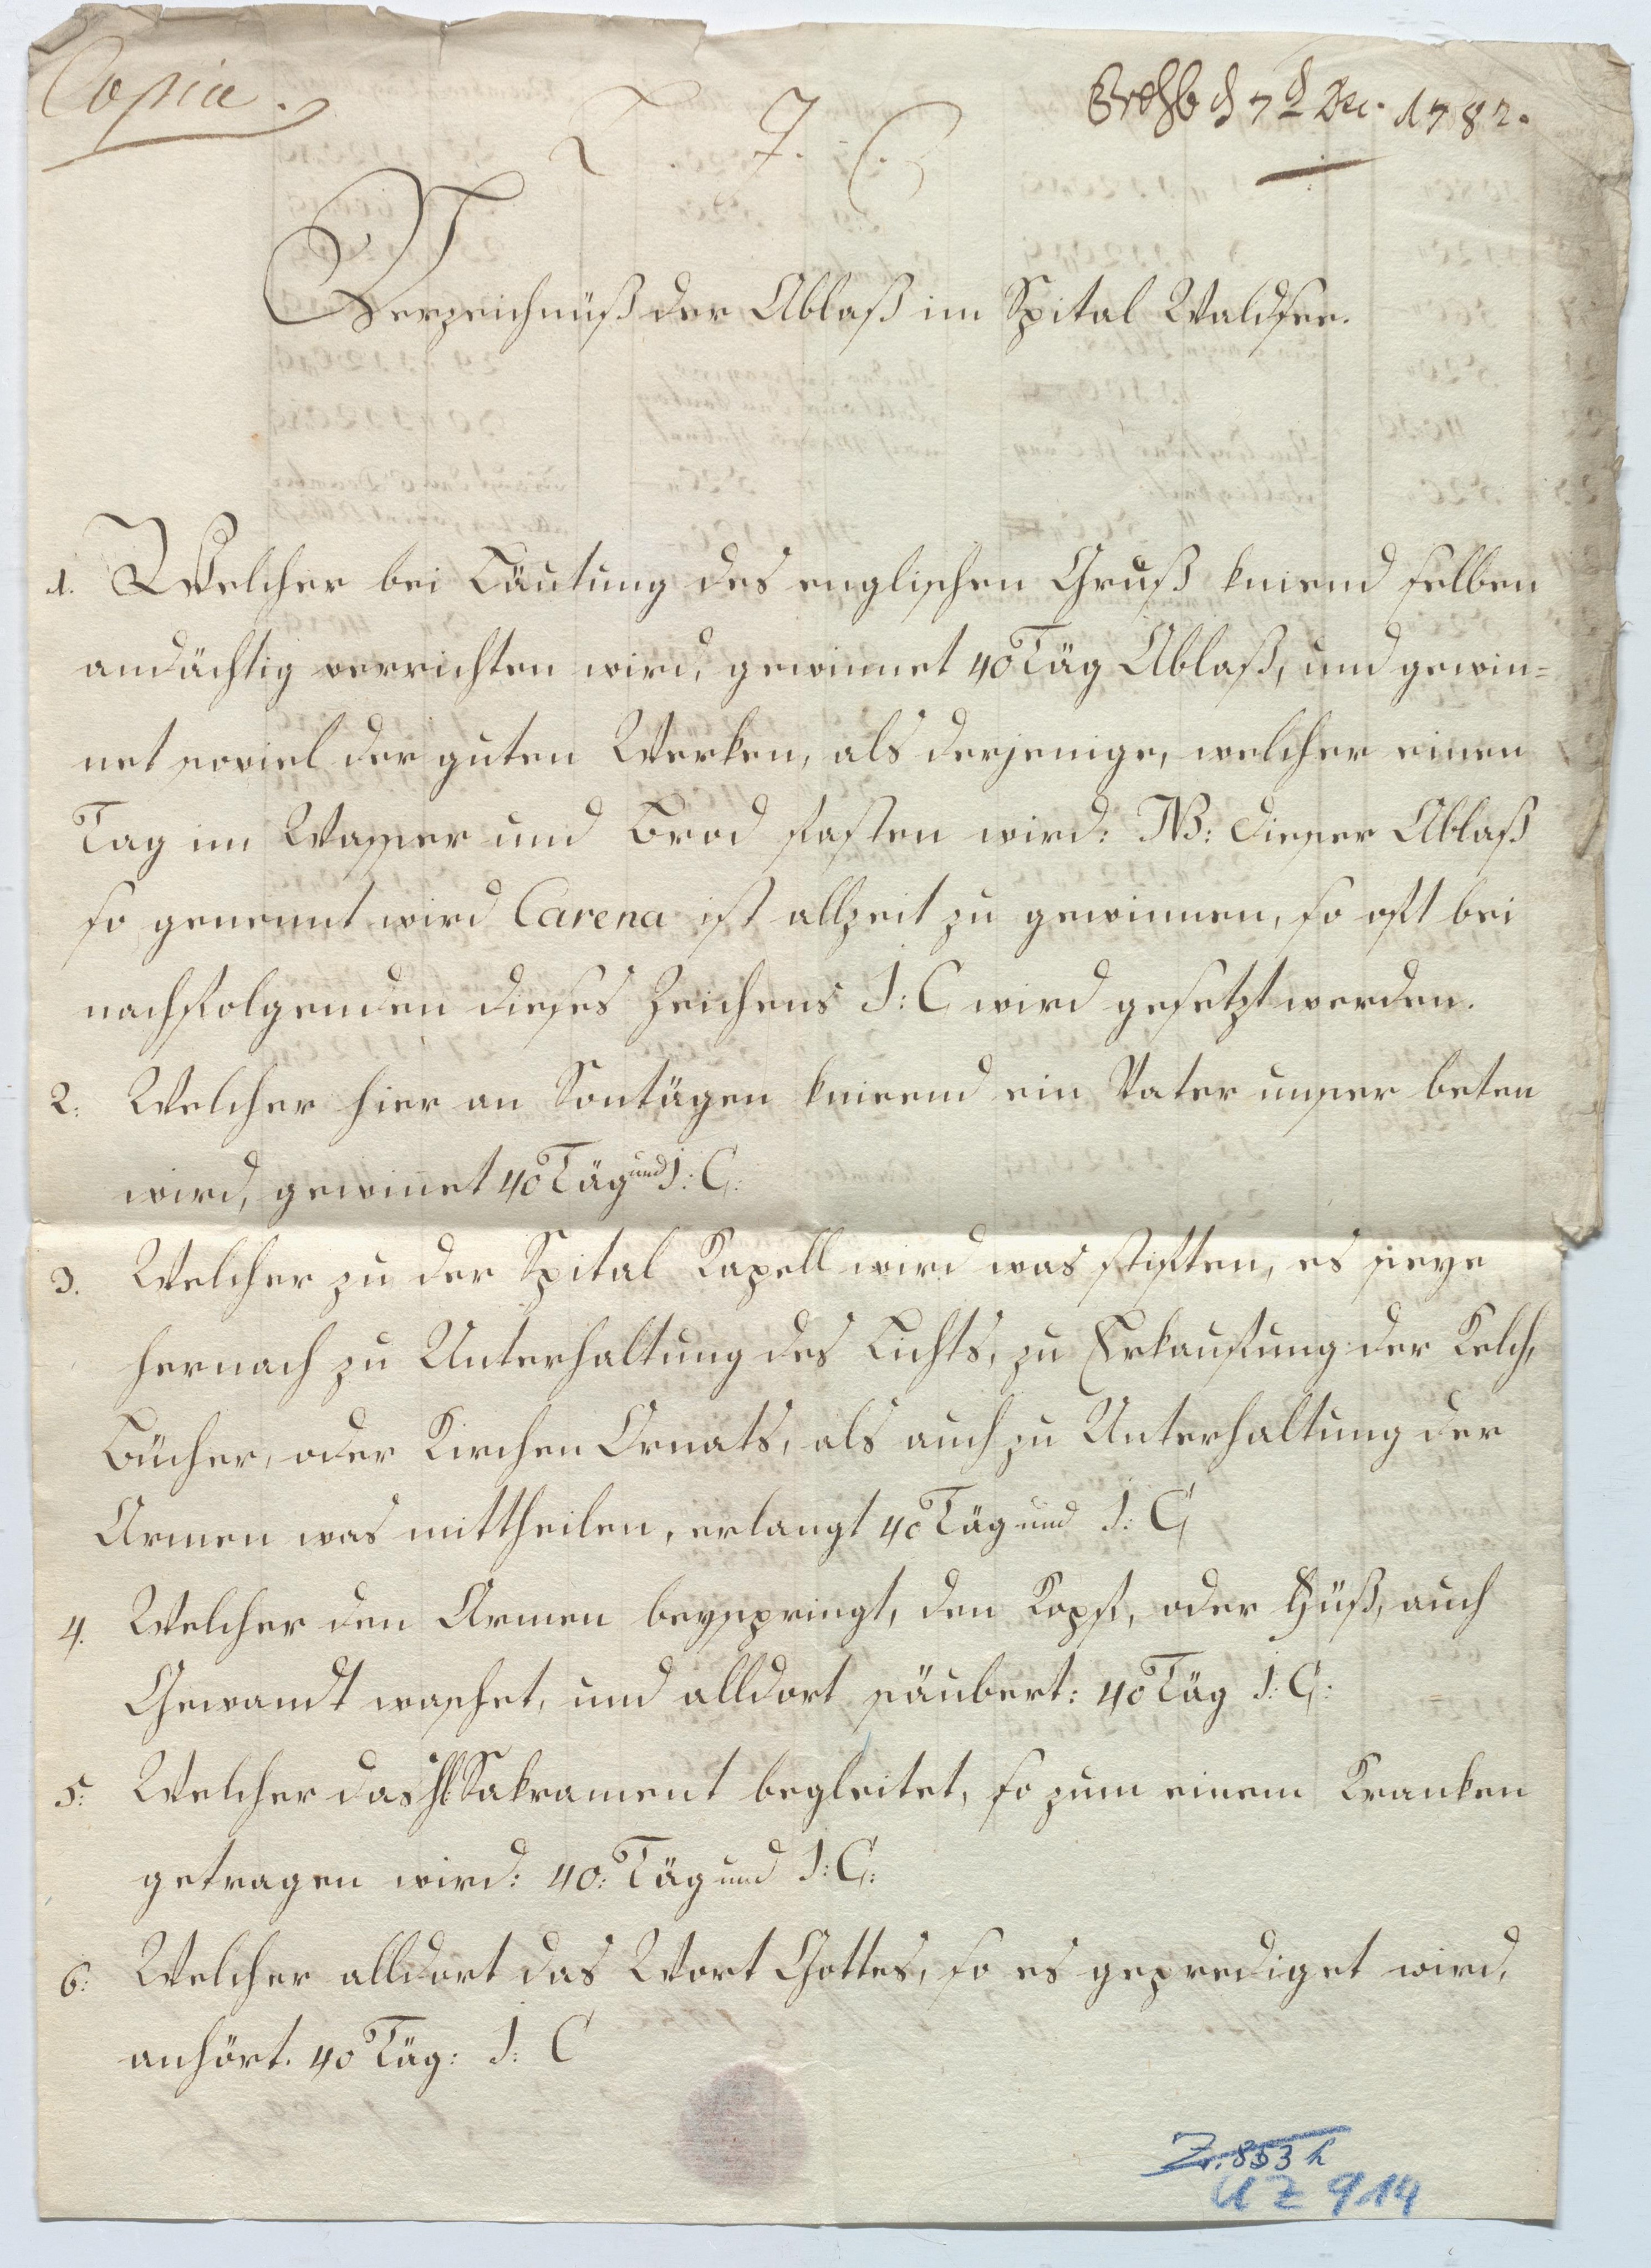 Copia.
7 d Dec. 1782.
L. J. C.
Verzeichnüß der Ablaß im Spital Waldsee.
1. Welcher bei Läutung des englischen Gruß kniend selben
andächtig verrichten wird, gewinnet 40 Täg Ablaß, und gewin=
net soviel der guten Werken, als derjenige, welcher einen
Tag im Wasser und Brod fasten wird: NB: dieser Ablaß
so genennt wird Carena ist allzeit zu gewinnen, so oft bei
nachfolgenden dieses Zeichens 1: C wird gesetzt werden.
2: Welcher hier an Sontägen knieend ein Vater unser beten
wird, gewinnet 40 Täg und 1: C:
3. Welcher zu der Spital Kapell wird was stiften, es seye
hernach zu Unterhaltung des Lichts, zu Erkaufung der Kelch,
Bücher, oder Kirchen Ornats, als auch zu Unterhaltung der
Armen was mittheilen, erlangt 40 Täg und 1: C
4. Welcher den Armen beyspringt, den Kopf, oder Füß, auch
Gewandt waschet, und alldort säubert: 40 Täg 1: C:
5: Welcher das hl: Sakrament begleitet, so zum einem Kranken
getragen wird: 40: Täg und 1: C:
6: Welcher alldort das Wort Gottes, so es geprediget wird,
anhört. 40 Täg: 1: C
Z. 853 h
U Z 914